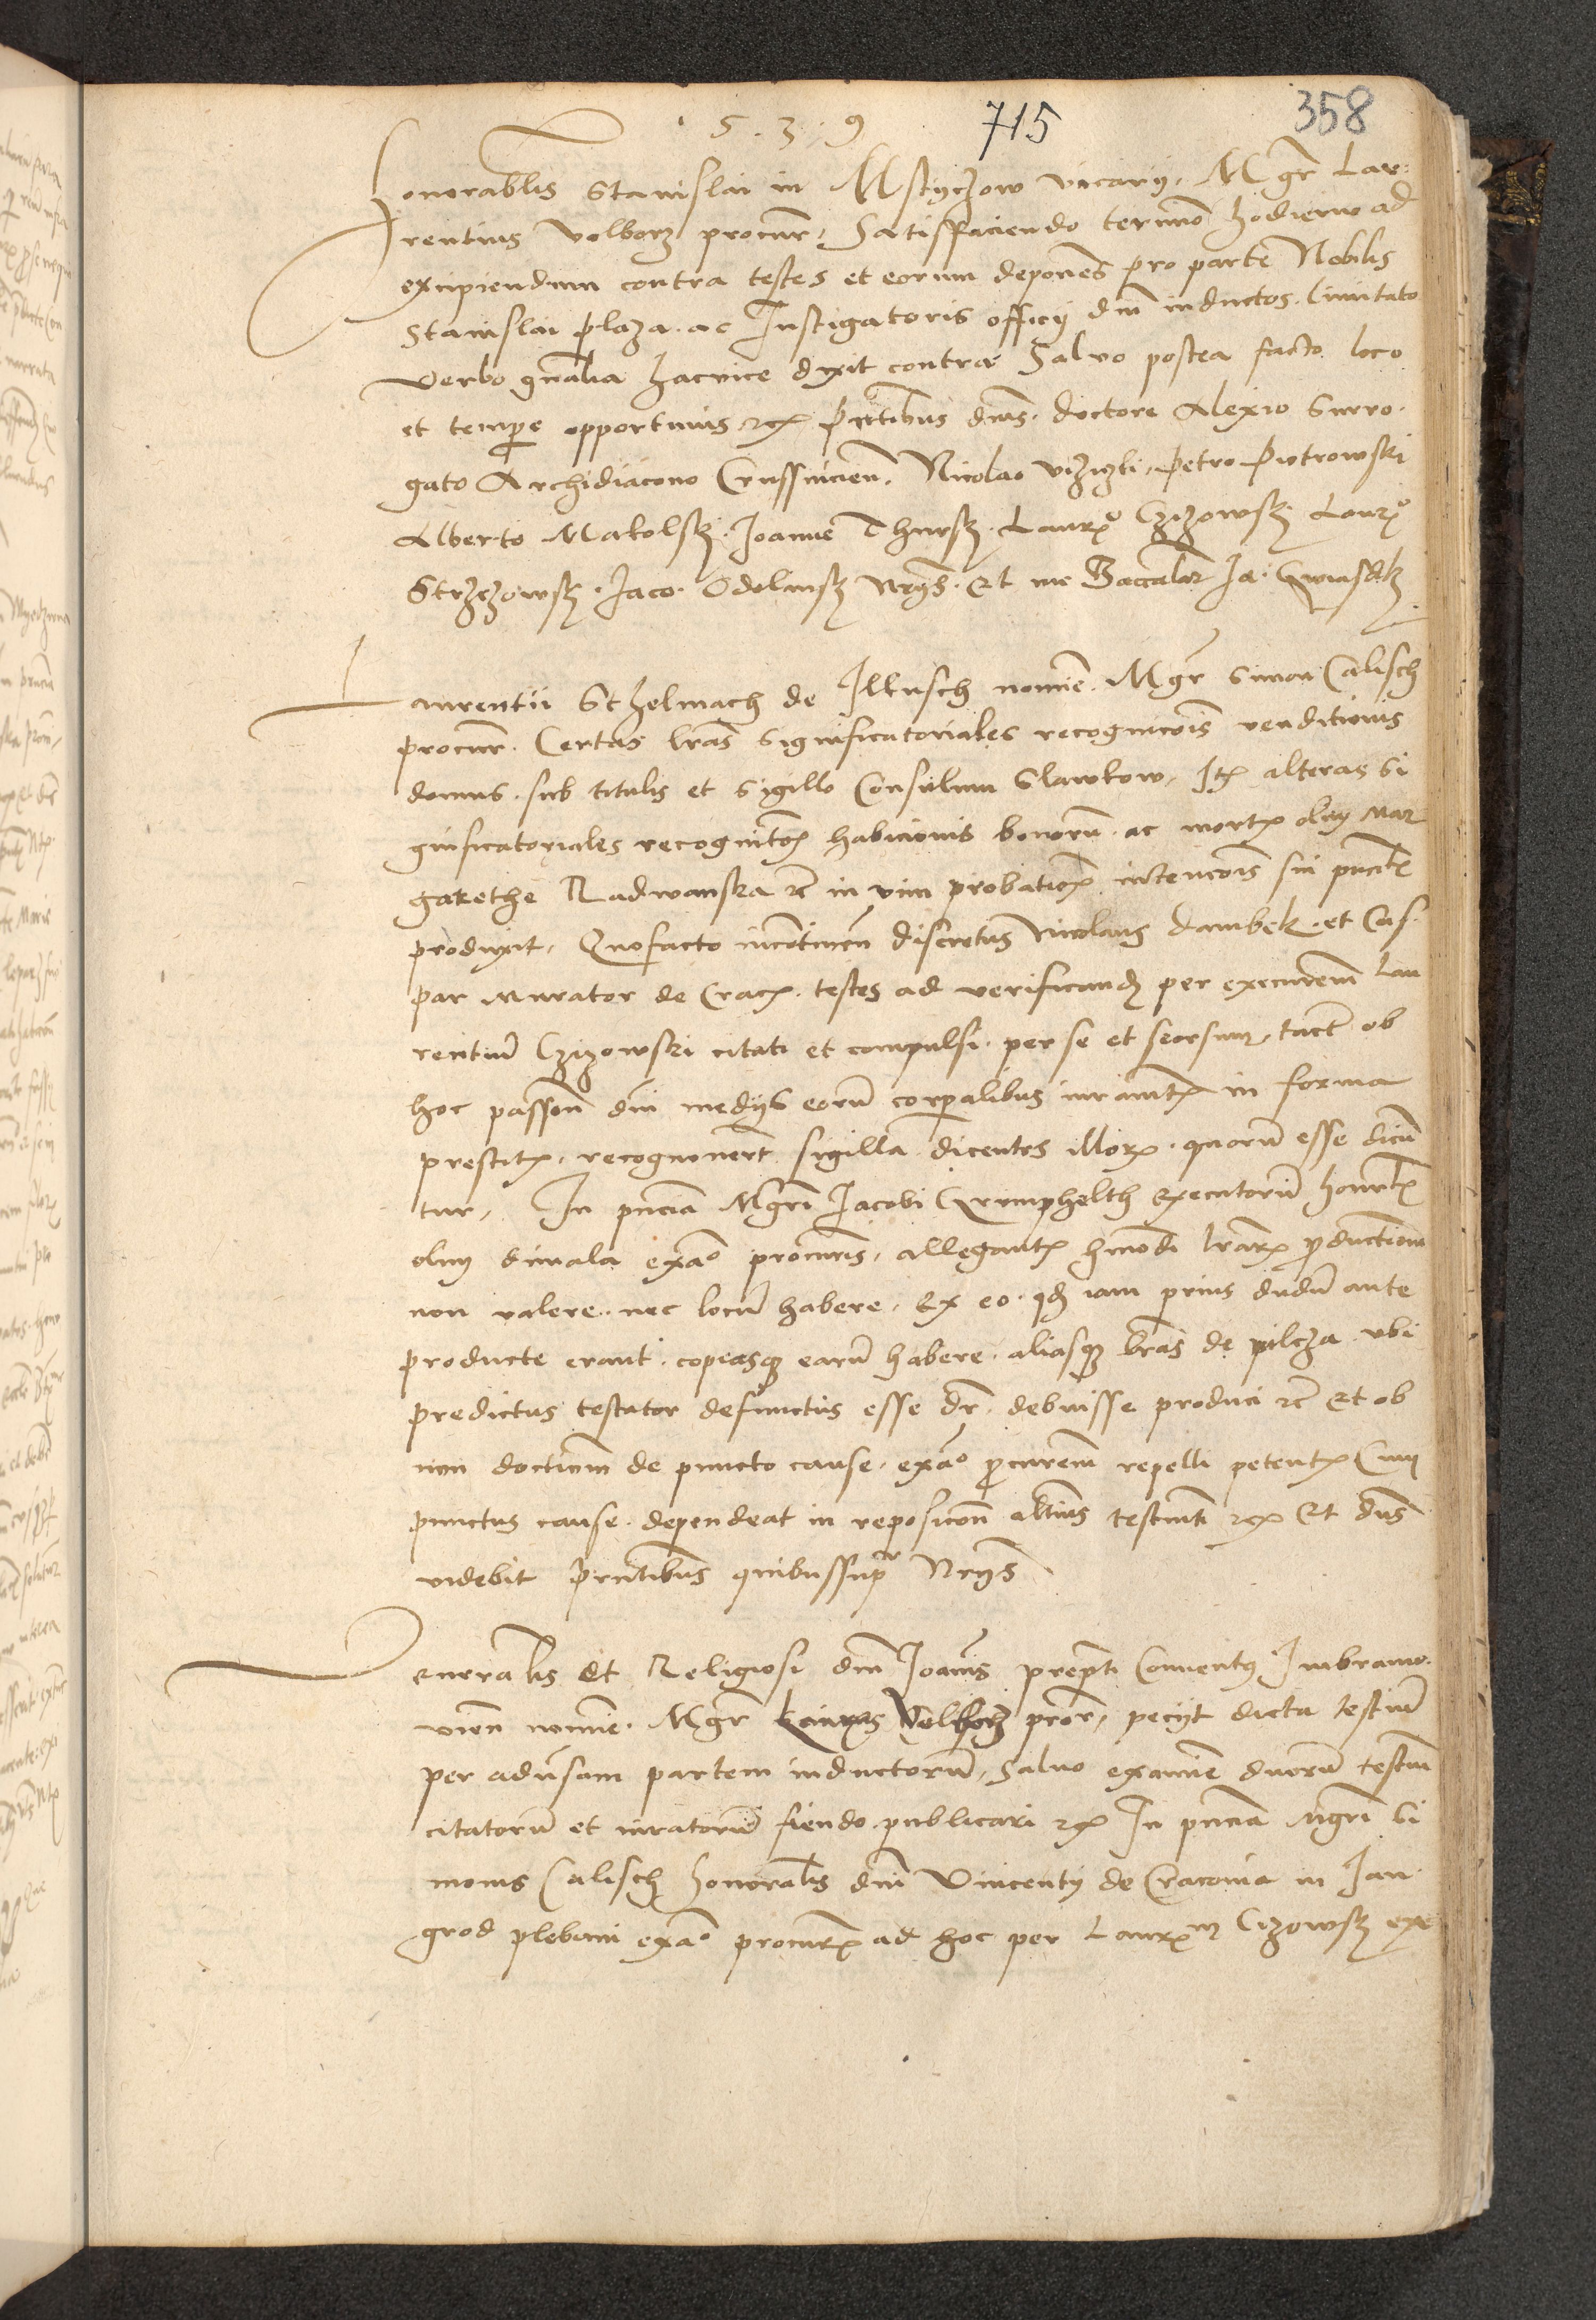 · 5 · 3 · 9 715 358
Honorabilis Stanislai in Mstyczow vicarij. Mgr Lau:
rentius Volborz procur. Satisffaciendo termino hodierno ad
excipiendum contra testes et eorum depones pro parte Nobilis
Stanislai Plaza. ac Instigatoris officij dni inductos. Cimitato
verbo gnalia hacvice dixit contra Salvo postea facto loco
et tempore opportunis etc Pntibus dnis. doctore Alexio Surro-
gato Archidiacono Crussvicien. Nicolao petro Piotrowski
Alberto Makolsky. Joanne Thursky. Laurο Czizowsky Laurο
Strzezowsky. Jaco. Odolinsky Nrijs. Et me Baccalar Ja. Gwiasdk
Laurentii Sthelmach de Illkusch nomine. Mgr Simon Calisch
procur. Certas lras significatoriales recognicois venditionis
domus. sub titulis et sigillo Consulum Slawkow. Ite alteras si
gnificatoriales recognito habicionis bonorum. ac mortis olim Mar
garethe Radwanska etc in vim probationis intencois sui
produxit. Quofacto incontinen discretus Nicolaus Dambek. et Cas-
par Murator de Crac. testes ad verificand per executorem Lau
rentium Czizowski citati et compulsi. per se et seorsum. tact ob
hoc passion dni medijs eorum corporalibus iurament in forma
prestit. recognouert sigilla dicentes illor. quorum esse dicun
tur. In pncia Mgri Jacobi Grimphelth executorum honorabilis
olim exao procuris. allegant hmodi lrar productionem
non valere. nec locum habere. Ex eo. qd iam prius dudum ante
producte erant. copiasq earum habere. aliasq lras de pilcza. ubi
predictus testator defunctus esse dr. debuisse produci etc Et ob
non doctionem de puncto cause. exao procurem repelli petent Cum
punctus cause. dependeat in reposicon testmti etc Et dns
videbit Prntibus quibussupr Nrijs
Venerabilis Et Religiosi dni Joannis prepti Conventus Imbramo-
vien nomine. Mgr Laurus Volborz procr. pecijt dicta testium
per adversam partem inductorum. salvo examine duorum testium
citatorum et iuratorum fiendo publicari etc In pncia Mgri Si
monis Calisch honorabilis dni Vincentij de Cracovia in Jan-
grod plebani exao procuris ad hoc per Laurum Czizowsky exe